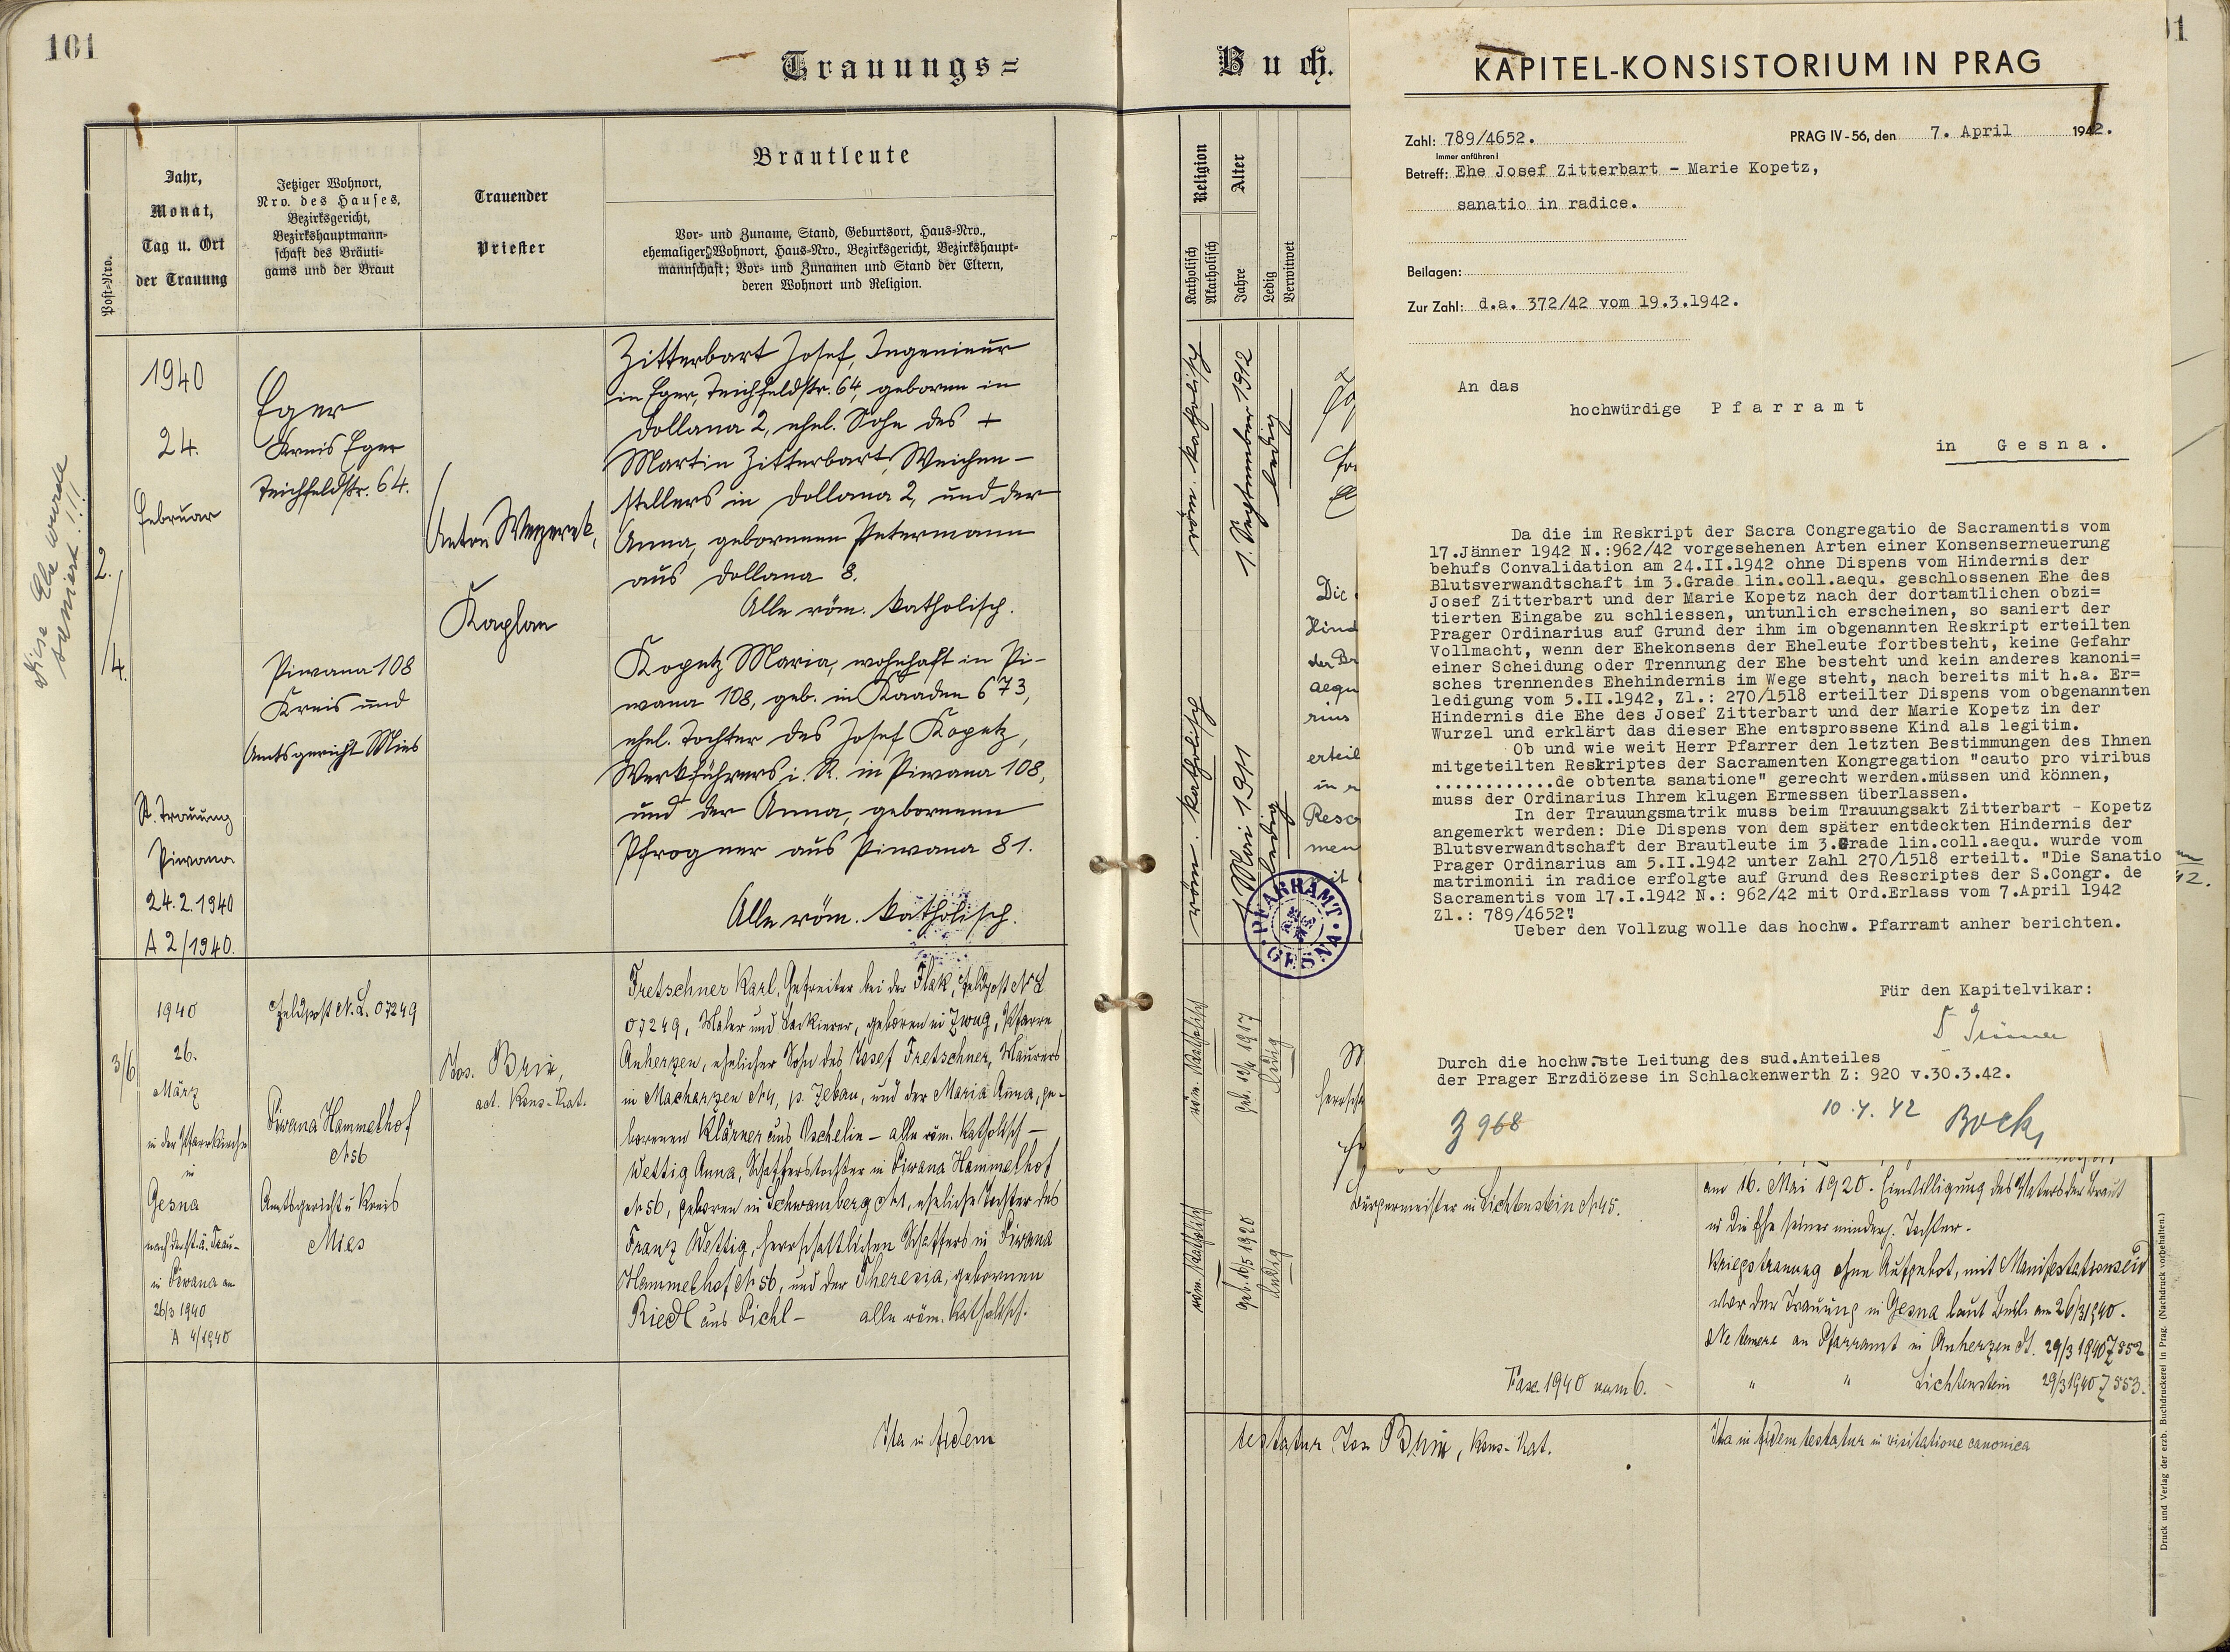 101
Trauungs=
Post=Nro.
Jahr,
Monat,
Tag u. Ort
der Trauung
Jetziger Wohnort,
Nro. des Hauses,
Bezirksgericht,
Bezirkshauptmann=
schaft des Bräuti=
gams und der Braut
Trauender
Priester
Brautleute
Vor= und Zuname, Stand, Geburtsort, Haus=Nro.,
ehemaliger Wohnort, Haus=Nro., Bezirksgericht, Bezirkshaupt=
mannschaft; Vor= und Zunamen und Stand der Eltern,
deren Wohnort und Religion.
Diese Ehe wurde
saniert!!!
2./4.
1940
24.
Februar
St. Trauung
Piwana
24.2.1940
A 2/1940.
Eger
Kreis Eger
Teichfeldstr. 64.
Piwana 108
Kreis und
Amtsgericht Mies
Anton
Kaplan
Zitterbart Josef, Ingenieur
in Eger, Teichfeldstr. 64, geboren in
Dollana 2, ehel. Sohn des +
Martin Zitterbart, Weichen-
stellers in Dollana 2, und der
Anna, geborenen Petermann
aus Dollana 8.
Alle röm. katholisch.
Kopetz Maria, wohnhaft in Pi-
wana 108, geb. in Kaaden 673,
ehel. Tochter des Josef Kopetz,
Werkführers i. R. in Piwana 108,
und der Anna, geborenen
Pfrogner aus Piwana 81.
Alle röm. katholisch.
3/6
1940
26.
März
in der Pfarrkirche
in
Gesna
nach der st.ä. Trau-
in Piwana am
26/3 1940
A 4/1940
Feldpost N. L. 07249
Piwana Hammelhof
N 56
Amtsgericht u Kreis
Mies
Jos. Brix,
act. Kons.-Rat.
Fretschner Karl, Gefreiter bei der Flak, Feldpost N L
07249, Maler und Lackierer, geboren in Zwug, Pfarre
Anherzen, ehelicher Sohn des Josef Fretschner, Maurers
in Macharzen N 4, p. Zebau, und der Maria Anna, ge-
borenen Klärner aus Oschelin - alle röm. katholisch -
Wettig Anna, Schafferstochter in Piwana Hammelhof
N 56, geboren in Schwamberg N 1, eheliche Tochter des
Franz Wettig, herrschaftlichen Schaffers in Piwana
Hammelhof N 56, und der Theresia, gebornen
Riedl aus Pichl - alle röm. katholisch.
Ita in fidem
Buch.
Religion
Katholisch
Akatholisch
Alter
Jahre
Ledig
Verwitwet
röm. katholisch
1. September 1912
ledig
röm. katholisch
1. Mai 1911
ledig
Die
Hind
der Br
aequ
rius
erteil
in r
Resc
men
mit
PFARRAMT
GESNA
röm. katholisch
ledig
röm. katholisch
geb. 16/5 1920
ledig
KAPITEL-KONSISTORIUM IN PRAG
Zahl: 789/4652.
Immer anführen!
PRAG IV-56, den 7. April 1942.
Betreff: Ehe Josef Zitterbart - Marie Kopetz,
sanatio in radice.
Beilagen:
Zur Zahl: d.a. 372/42 vom 19.3.1942.
An das
hochwürdige P f a r r a m t
in G e s n a .
Da die im Reskript der Sacra Congregatio de Sacramentis vom
17.Jänner 1942 N.:962/42 vorgesehenen Arten einer Konsenserneuerung
behufs Convalidation am 24.II.1942 ohne Dispens vom Hindernis der
Blutsverwandtschaft im 3.Grade lin.coll.aequ. geschlossenen Ehe des
Josef Zitterbart und der Marie Kopetz nach der dortamtlichen obzi=
tierten Eingabe zu schliessen, untunlich erscheinen, so saniert der
Prager Ordinarius auf Grund der ihm im obgenannten Reskript erteilten
Vollmacht, wenn der Ehekonsens der Eheleute fortbesteht, keine Gefahr
einer Scheidung oder Trennung der Ehe besteht und kein anderes kanoni=
sches trennendes Ehehindernis im Wege steht, nach bereits mit h.a. Er=
ledigung vom 5.II.1942, Zl.: 270/1518 erteilter Dispens vom obgenannten
Hindernis die Ehe des Josef Zitterbart und der Marie Kopetz in der
Wurzel und erklärt das dieser Ehe entsprossene Kind als legitim.
Ob und wie weit Herr Pfarrer den letzten Bestimmungen des Ihnen
mitgeteilten Reskriptes der Sacramenten Kongregation "cauto pro viribus
............de obtenta sanatione" gerecht werden.müssen und können,
muss der Ordinarius Ihrem klugen Ermessen überlassen.
In der Trauungsmatrik muss beim Trauungsakt Zitterbart - Kopetz
angemerkt werden: Die Dispens von dem später entdeckten Hindernis der
Blutsverwandtschaft der Brautleute im 3.Grade lin.coll.aequ. wurde vom
Prager Ordinarius am 5.II.1942 unter Zahl 270/1518 erteilt. "Die Sanatio
matrimonii in radice erfolgte auf Grund des Rescriptes der S.Congr. de
Sacramentis vom 17.I.1942 N.: 962/42 mit Ord.Erlass vom 7.April 1942
Zl.: 789/4652"!
Ueber den Vollzug wolle das hochw. Pfarramt anher berichten.
Für den Kapitelvikar:
Durch die hochw.ste Leitung des sud.Anteiles
der Prager Erzdiözese in Schlackenwerth Z: 920 v.30.3.42.
10.4.42 Bock
Z 968
Bürgermeister in Lichtenstein N 45.
Fasc. 1940 num 6.
am 16. Mai 1920. Einwilligung des Vaters der Braut
in die Ehe seiner minderj. Tochter.
Kriegstrauung ohne Aufgebot, mit Manifestationseid
vor der Trauung in Gesna laut am 26/3 1940.
Ne temere an Pfarramt in Anherzen dt. 29/3 1940 Z 552
" " Lichtenstein 29/3 1940 Z 553.
testatur Jos Brix, Kons.-Rat.
Ita in fidem testatur in visitatione canonica
Druck und Verlag der erzb. Buchdruckerei in Prag. (Nachdruck vorbehalten.)